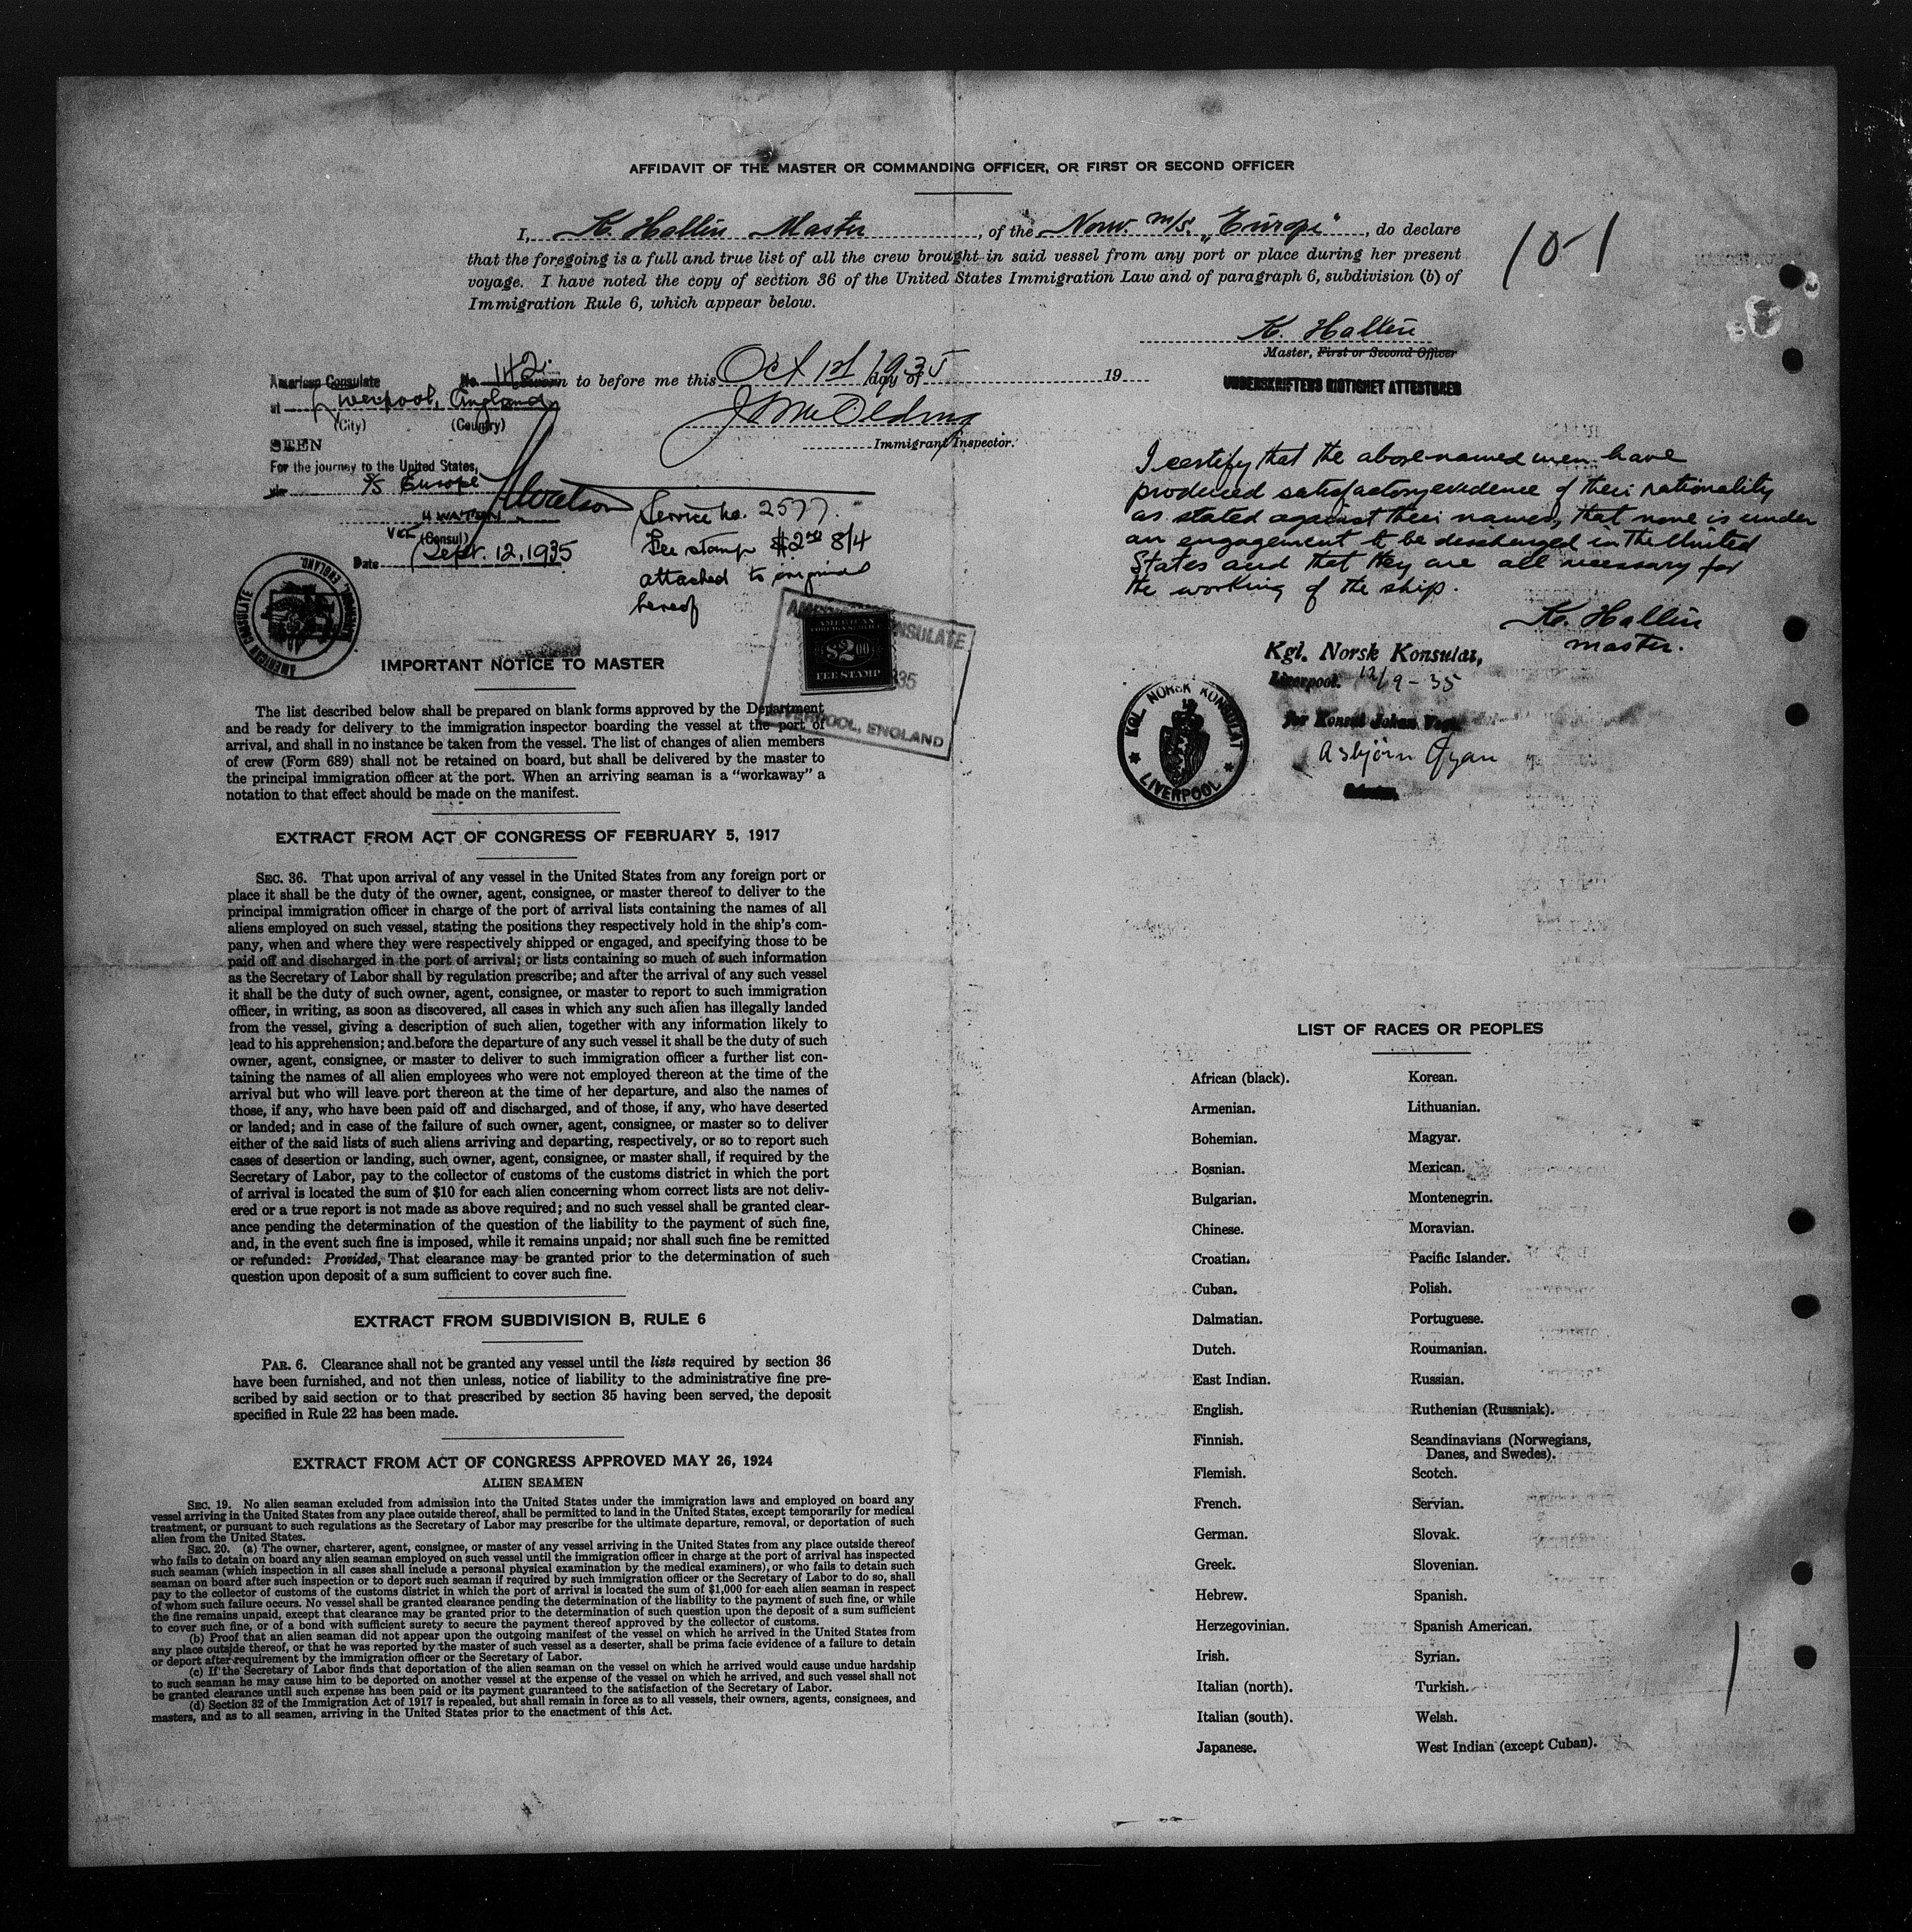 AFFIDAVIT OF THE MASTER OR COMMANDING OFFICER, OR FIRST OR SECOND OFFICER
I, K. Hallin Master, of the Norw. m/s. „Europe", do declare
that the foregoing is a full and true list of all the crew brought in said vessel from any port or place during her present
voyage. I have noted the copy of section 36 of the United States Immigration Law and of paragraph 6, subdivision (b) of
Immigration Rule 6, which appear below.
K. Hallin
Master, First or Second Officer
Sworn to before me this Oct 1st 1935 day of 19
Immigrant Inspector.
UNDERSKRIFTENS RIGTIGHET ATTESTERES
American Consulate No.
at Liverpool, England
(City) (Country)
SEEN
For the journey to the United States,
S/S Europe
H WATSON
Vice (Consul)
Date Sept. 12, 1935
AMERICAN CONSULATE LIVERPOOL, ENGLAND
Service no. 2577.
Fee stamp $2.00 8/4
attached to original
hereof
AMERICAN CONSULATE
AMERICAN
FOREIGN SERVICE
$2.00
FEE STAMP
35
LIVERPOOL, ENGLAND
I certify that the above-named men have
produced satisfactory evidence of their nationality
as stated against their names, that none is under
an engagement to be discharged in the United
States and that they are all necessary for
the working of the ship.
K. Hallin
master.
Kgl. Norsk Konsulat,
Liverpool. 12/9-35
for Konsul Johan Vogt
KGL. NORSK KONSULAT
LIVERPOOL
IMPORTANT NOTICE TO MASTER
The list described below shall be prepared on blank forms approved by the Department
and be ready for delivery to the immigration inspector boarding the vessel at the port of
arrival, and shall in no instance be taken from the vessel. The list of changes of alien members
of crew (Form 689) shall not be retained on board, but shall be delivered by the master to
the principal immigration officer at the port. When an arriving seaman is a "workaway" a
notation to that effect should be made on the manifest.
EXTRACT FROM ACT OF CONGRESS OF FEBRUARY 5, 1917
SEC. 36. That upon arrival of any vessel in the United States from any foreign port or
place it shall be the duty of the owner, agent, consignee, or master thereof to deliver to the
principal immigration officer in charge of the port of arrival lists containing the names of all
aliens employed on such vessel, stating the positions they respectively hold in the ship's com-
pany, when and where they were respectively shipped or engaged, and specifying those to be
paid off and discharged in the port of arrival; or lists containing so much of such information
as the Secretary of Labor shall by regulation prescribe; and after the arrival of any such vessel
it shall be the duty of such owner, agent, consignee, or master to report to such immigration
officer, in writing, as soon as discovered, all cases in which any such alien has illegally landed
from the vessel, giving a description of such alien, together with any information likely to
lead to his apprehension; and before the departure of any such vessel it shall be the duty of such
owner, agent, consignee, or master to deliver to such immigration officer a further list con-
taining the names of all alien employees who were not employed thereon at the time of the
arrival but who will leave port thereon at the time of her departure, and also the names of
those, if any, who have been paid off and discharged, and of those, if any, who have deserted
or landed; and in case of the failure of such owner, agent, consignee, or master so to deliver
either of the said lists of such aliens arriving and departing, respectively, or so to report such
cases of desertion or landing, such owner, agent, consignee, or master shall, if required by the
Secretary of Labor, pay to the collector of customs of the customs district in which the port
of arrival is located the sum of $10 for each alien concerning whom correct lists are not deliv-
ered or a true report is not made as above required; and no such vessel shall be granted clear-
ance pending the determination of the question of the liability to the payment of such fine,
and, in the event such fine is imposed, while it remains unpaid; nor shall such fine be remitted
or refunded: Provided, That clearance may be granted prior to the determination of such
question upon deposit of a sum sufficient to cover such fine.
EXTRACT FROM SUBDIVISION B, RULE 6
PAR. 6. Clearance shall not be granted any vessel until the lists required by section 36
have been furnished, and not then unless, notice of liability to the administrative fine pre-
scribed by said section or to that prescribed by section 35 having been served, the deposit
specified in Rule 22 has been made.
EXTRACT FROM ACT OF CONGRESS APPROVED MAY 26, 1924
ALIEN SEAMEN
SEC. 19. No alien seaman excluded from admission into the United States under the immigration laws and employed on board any
vessel arriving in the United States from any place outside thereof, shall be permitted to land in the United States, except temporarily for medical
treatment, or pursuant to such regulations as the Secretary of Labor may prescribe for the ultimate departure, removal, or deportation of such
alien from the United States.
SEC. 20. (a) The owner, charterer, agent, consignee, or master of any vessel arriving in the United States from any place outside thereof
who fails to detain on board any alien seaman employed on such vessel until the immigration officer in charge at the port of arrival has inspected
such seaman (which inspection in all cases shall include a personal physical examination by the medical examiners), or who fails to detain such
seaman on board after such inspection or to deport such seaman if required by such immigration officer or the Secretary of Labor to do so, shall
pay to the collector of customs of the customs district in which the port of arrival is located the sum of $1,000 for each alien seaman in respect
of whom such failure occurs. No vessel shall be granted clearance pending the determination of the liability to the payment of such fine, or while
the fine remains unpaid, except that clearance may be granted prior to the determination of such question upon the deposit of a sum sufficient
to cover such fine, or of a bond with sufficient surety to secure the payment thereof approved by the collector of customs.
(b) Proof that an alien seaman did not appear upon the outgoing manifest of the vessel on which he arrived in the United States from
any place outside thereof, or that he was reported by the master of such vessel as a deserter, shall be prima facie evidence of a failure to detain
or deport after requirement by the immigration officer or the Secretary of Labor.
(c) If the Secretary of Labor finds that deportation of the alien seaman on the vessel on which he arrived would cause undue hardship
to such seaman he may cause him to be deported on another vessel at the expense of the vessel on which he arrived, and such vessel shall not
be granted clearance until such expense has been paid or its payment guaranteed to the satisfaction of the Secretary of Labor.
(d) Section 32 of the Immigration Act of 1917 is repealed, but shall remain in force as to all vessels, their owners, agents, consignees, and
masters, and as to all seamen, arriving in the United States prior to the enactment of this Act.
LIST OF RACES OR PEOPLES
African (black).
Armenian.
Bohemian.
Bosnian.
Bulgarian.
Chinese.
Croatian.
Cuban.
Dalmatian.
Dutch.
East Indian.
English.
Finnish.
Flemish.
French.
German.
Greek.
Hebrew.
Herzegovinian.
Irish.
Italian (north).
Italian (south).
Japanese.
Korean.
Lithuanian.
Magyar.
Mexican.
Montenegrin.
Moravian.
Pacific Islander.
Polish.
Portuguese.
Roumanian.
Russian.
Ruthenian (Russniak).
Scandinavians (Norwegians,
Danes, and Swedes).
Scotch.
Servian.
Slovak.
Slovenian.
Spanish.
Spanish American.
Syrian.
Turkish.
Welsh.
West Indian (except Cuban).